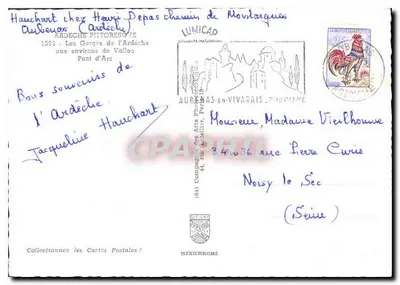 Hauchart chez Henri Depas chemin de Montargues
Aubenas (Ardèche)
ARDÈCHE PITTORESQUE
1593 - Les Gorges de l'Ardèche
aux environs de Vallon
Pont d'Arc
LUMICAP
AUBENAS-en-VIVARAIS. TOURISME
Bons souvenirs de
l'Ardèche.
Jacqueline Hauchart
Monsieur, Madame Vieilhomme
34 36 rue Pierre Curie
Noisy le Sec
(Seine)
Collectionnez les Cartes Postales !
MEXICHROME